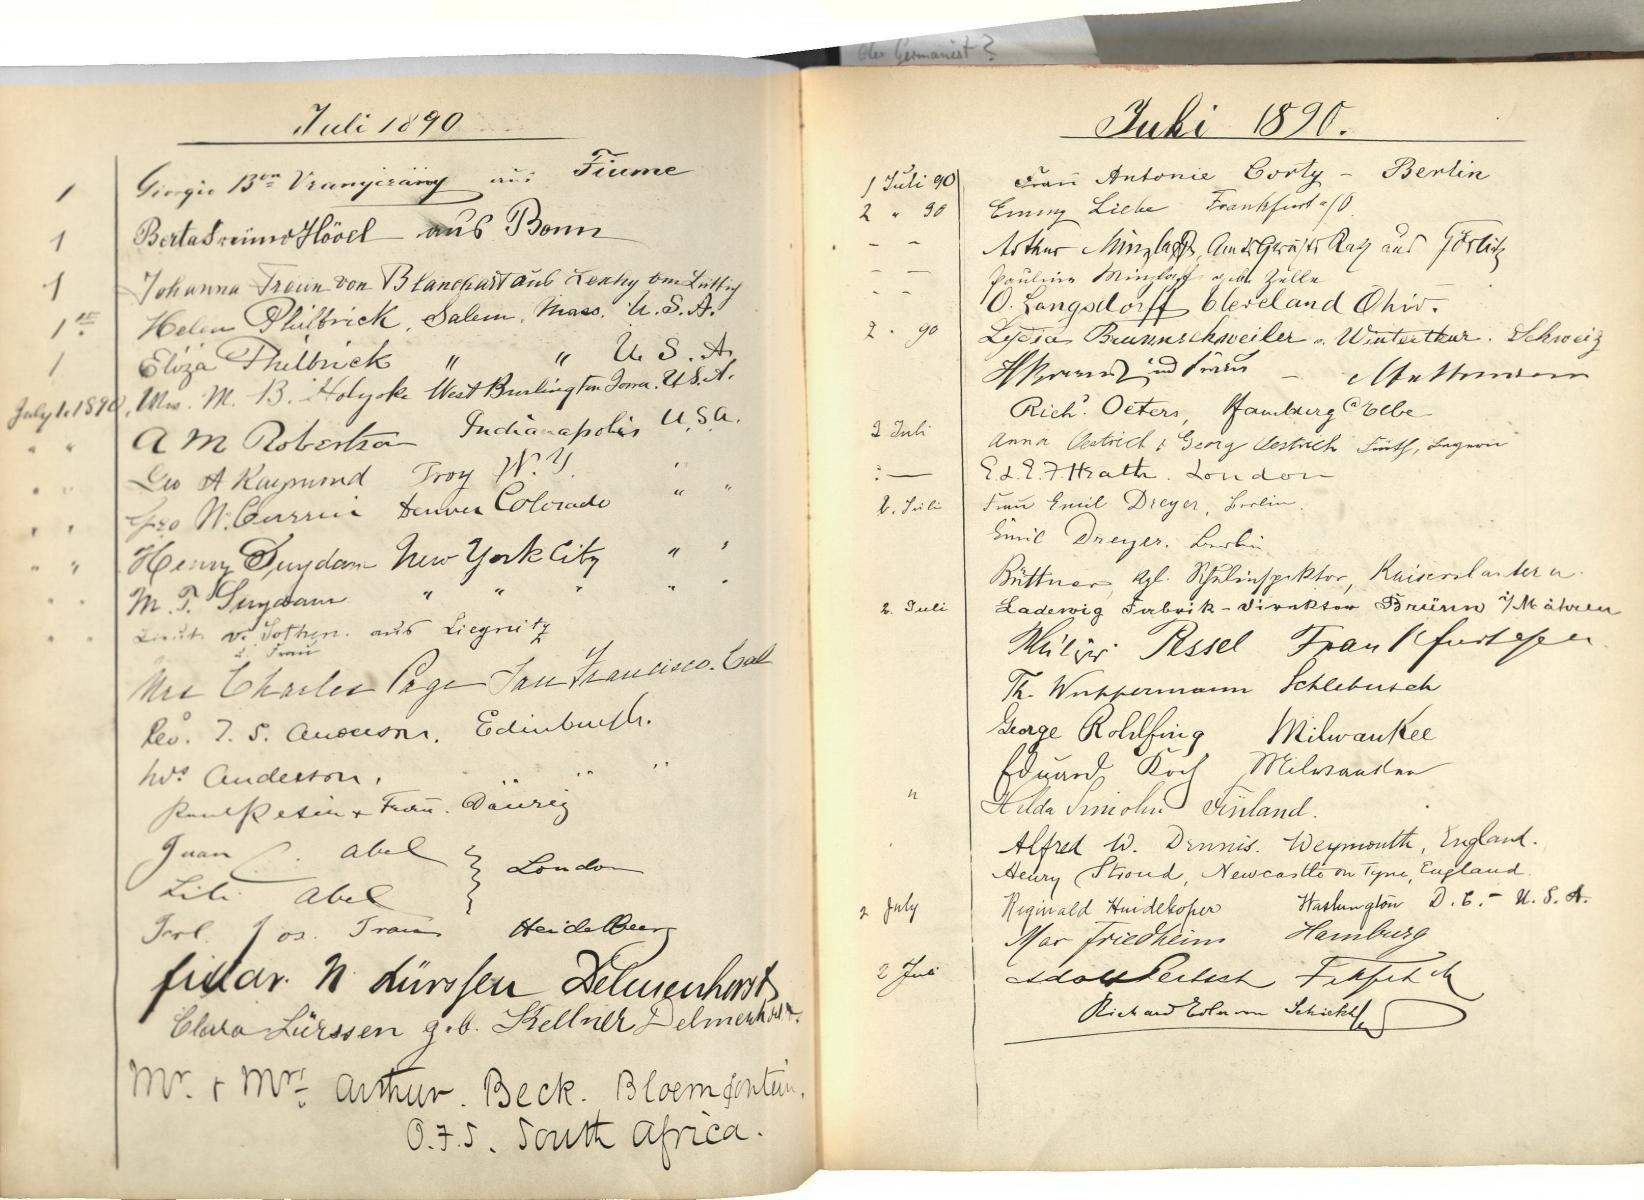 der Germanist?
Juli 1890
1 Giorgio Bon Vranyczány aus Fiume
1 Berta Freiin Hövel aus Bonn
1 Johanna Freiin von Blanchart aus Lexhy bei Lüttig
1st Helen Philbrick, Salem, Mass. U.S.A.
1 Eliza Philbrick " " U.S.A.
July 1. 1890. Mrs. M. B. Holyoke West Burlington Iowa. U.S.A.
" " A M Robertson Indianapolis U.S.A.
" " Geo A Raymond Troy N.Y. "
" " Geo N. Denver Colorado " "
" " Henry Suydam New York City " "
" " M. T. Suydam " " " " "
" " Lieut. v. Sothen. aus Liegnitz
u. Frau
Mrs Charles Page San Francisco. Cal
Rev. T. S. Anderson, Edinburgh.
Mrs Anderson, " " "
Paul u. Frau. Danzig
Juan C. Abel } London
Lili Abel
Frl. Jos. Traub Heidelberg
N. Lürssen Delmenhorst
Clara Lürssen geb. Kellner Delmenhorst.
Mr. & Mrs. Arthur. Beck. Bloemfontein.
O.F.S. South Africa.
Juli 1890.
1 Juli 90 Frau Antonie Corty – Berlin
2 " 90 Emmy Liebe Frankfurt a/O
– – Arthur Minzlaff, Amtsgerichts Rath aus Görlitz
– – Pauline Minzlaff geb. Zelle
– – O. Langsdorff Cleveland Ohio.
2. 90 Lydia Brunnschweiler v. Winterthur. Schweiz
und Frau –
Richd. Oeters, Hamburg a/Elbe
2 Juli Anna Oestrich & Georg Oestrich Fürth, Bayern
: — E. & E. F. Heath. London
2. Juli Frau Emil Dreyer, Berlin.
Emil Dreyer. Berlin
Büttner, kgl. Schulinspektor, Kaiserslautern.
2. Juli Ladewig Fabrik-Direktor Brünn i/Mähren
Pessel Frankfurt
Th. Wuppermann Schlebusch
George Rohlfing Milwaukee
Eduard Koch Milwaukee
" Hilda Finland.
Alfred W. Dennis. Weymouth, England.
Henry Stroud, Newcastle on Tyne, England.
2 July Reginald Huidekoper Washington D.C. – U.S.A.
Max Friedheim Hamburg
2 Juli Adolf
Richard